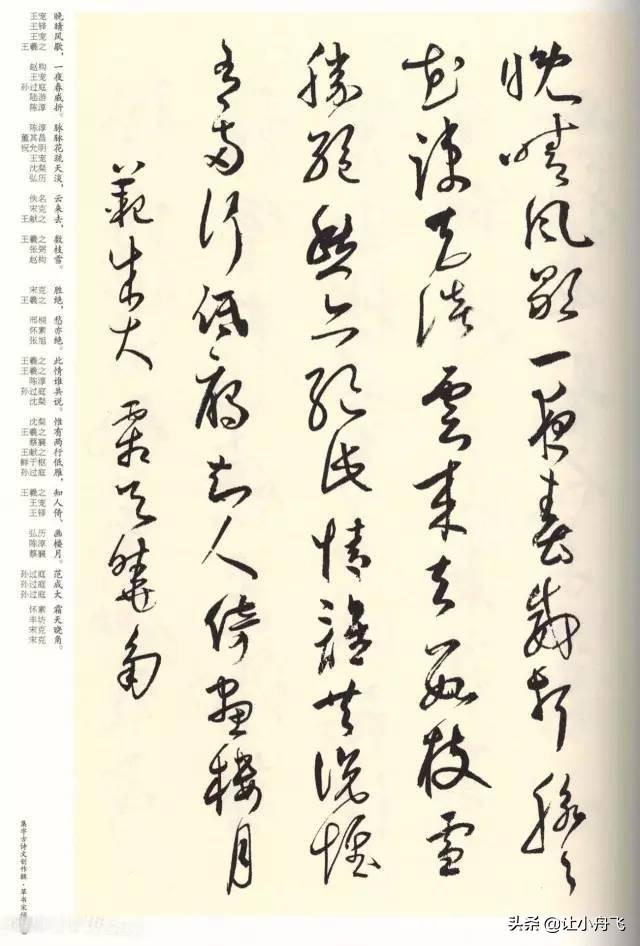 晚晴風歇一夜春威折脉々
花疎天淡雲来去數枝雪
勝絶愁亦絶此情誰共說惟
有兩行低雁知人倚畫樓月
範成大 霜天曉角
晚晴风歇，一夜春威折。脉脉花疏天淡，云来去，数枝雪。胜绝，愁亦绝。此情谁共说。惟有两行低雁，知人倚、画楼月。范成大 霜天晓角。
王宠 王铎 王宠 王羲之 赵构 王宠 孙过庭 陆游 陈淳 陈淳 董其昌 祝允明 王宠 沈粲 弘历 佚名 宋克 王献之 王羲之 张弼 赵构 宋克 王羲之 邢桐 怀素 张旭 王羲之 王羲之 陈淳 孙过庭 沈粲 沈粲 王羲之 蔡襄 王献之 鲜于枢 孙过庭 王羲之 王宠 王铎 弘历 陈淳 蔡襄 孙过庭 孙过庭 孙过庭 怀素 丰坊 宋克 宋克
集字古诗文创作辑·草书宋词
头条 @让小舟飞